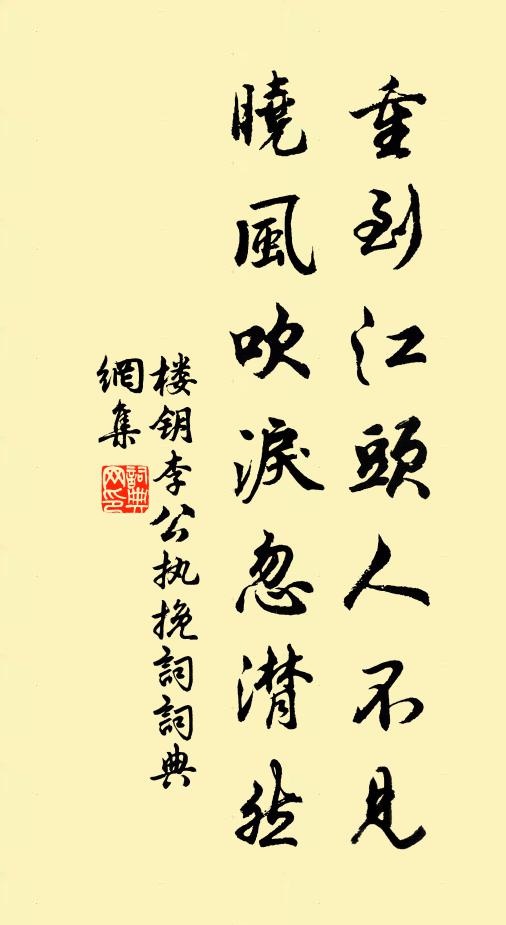 重到江頭人不見
曉風吹淚忽潸然
楼钥李公执挽詞詞典
網集
詞典
网印